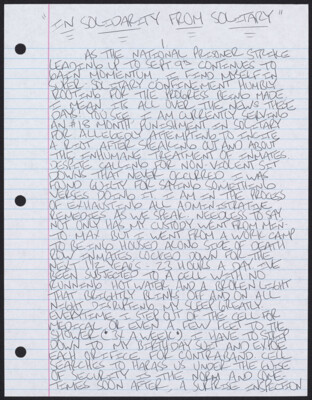 "IN SOLIDARITY FROM SOLITARY"
AS THE NATIONAL PRISONER STRIKE
LEADING UP TO SEPT 9th CONTINUES TO
GAIN MOMENTUM, I FIND MYSELF IN
SUPER SOLITARY CONFINEMENT HUMBLY
ROOTING FOR THE PROGRESS BEING MADE
I MEAN ITS ALL OVER THE NEWS THESE
DAYS. YOU SEE I AM CURRENTLY SERVING
AN 18 MONTH PUNISHMENT IN SOLITARY
FOR ALLEGEDLY ATTEMPTING TO INCITE
A RIOT AFTER SPEAKING OUT AND ABOUT
THE INHUMANE TREATMENT OF INMATES.
DESPITE CALLING FOR NON VIOLENT SIT
DOWNS THAT NEVER OCCURRED I WAS
FOUND GUILTY FOR SAYING SOMETHING
VERSES DOING IT. I AM IN THE PROCESS
OF EXHAUSTING ALL ADMINISTRATIVE
REMEDIES AS WE SPEAK. NEEDLESS TO SAY
NOT ONLY HAS MY CUSTODY WENT FROM MED
TO MAX BUT I WENT FROM A WORK CAMP
TO BEING HOUSED ALONG SIDE OF DEATH
ROW INMATES LOCKED DOWN FOR THE
NEXT 1½ YEARS 23 HOURS A DAY. I'VE
BEEN SUBJECTED TO A CELL WITH NO
RUNNING HOT WATER AND A BROKEN LIGHT
THAT BRIGHTLY BLINKS OFF AND ON ALL
NIGHT DISRUPTING MY SLEEP GREATLY.
EVERYTIME I STEP OUT OF THE CELL FOR
MEDICAL OR EVEN A FEW FEET TO THE
SHOWER A WEEK I HAVE TO STRIP
DOWN TO MY BIRTHDAY SUIT AND EXPOSE
EACH ORIFICE FOR CONTRABAND. CELL
SEARCHES TO HARASS US UNDER THE GUISE
OF SECURITY IS THE NORM AND SOME
TIMES SOON AFTER, A SURPRISE INSPECTION